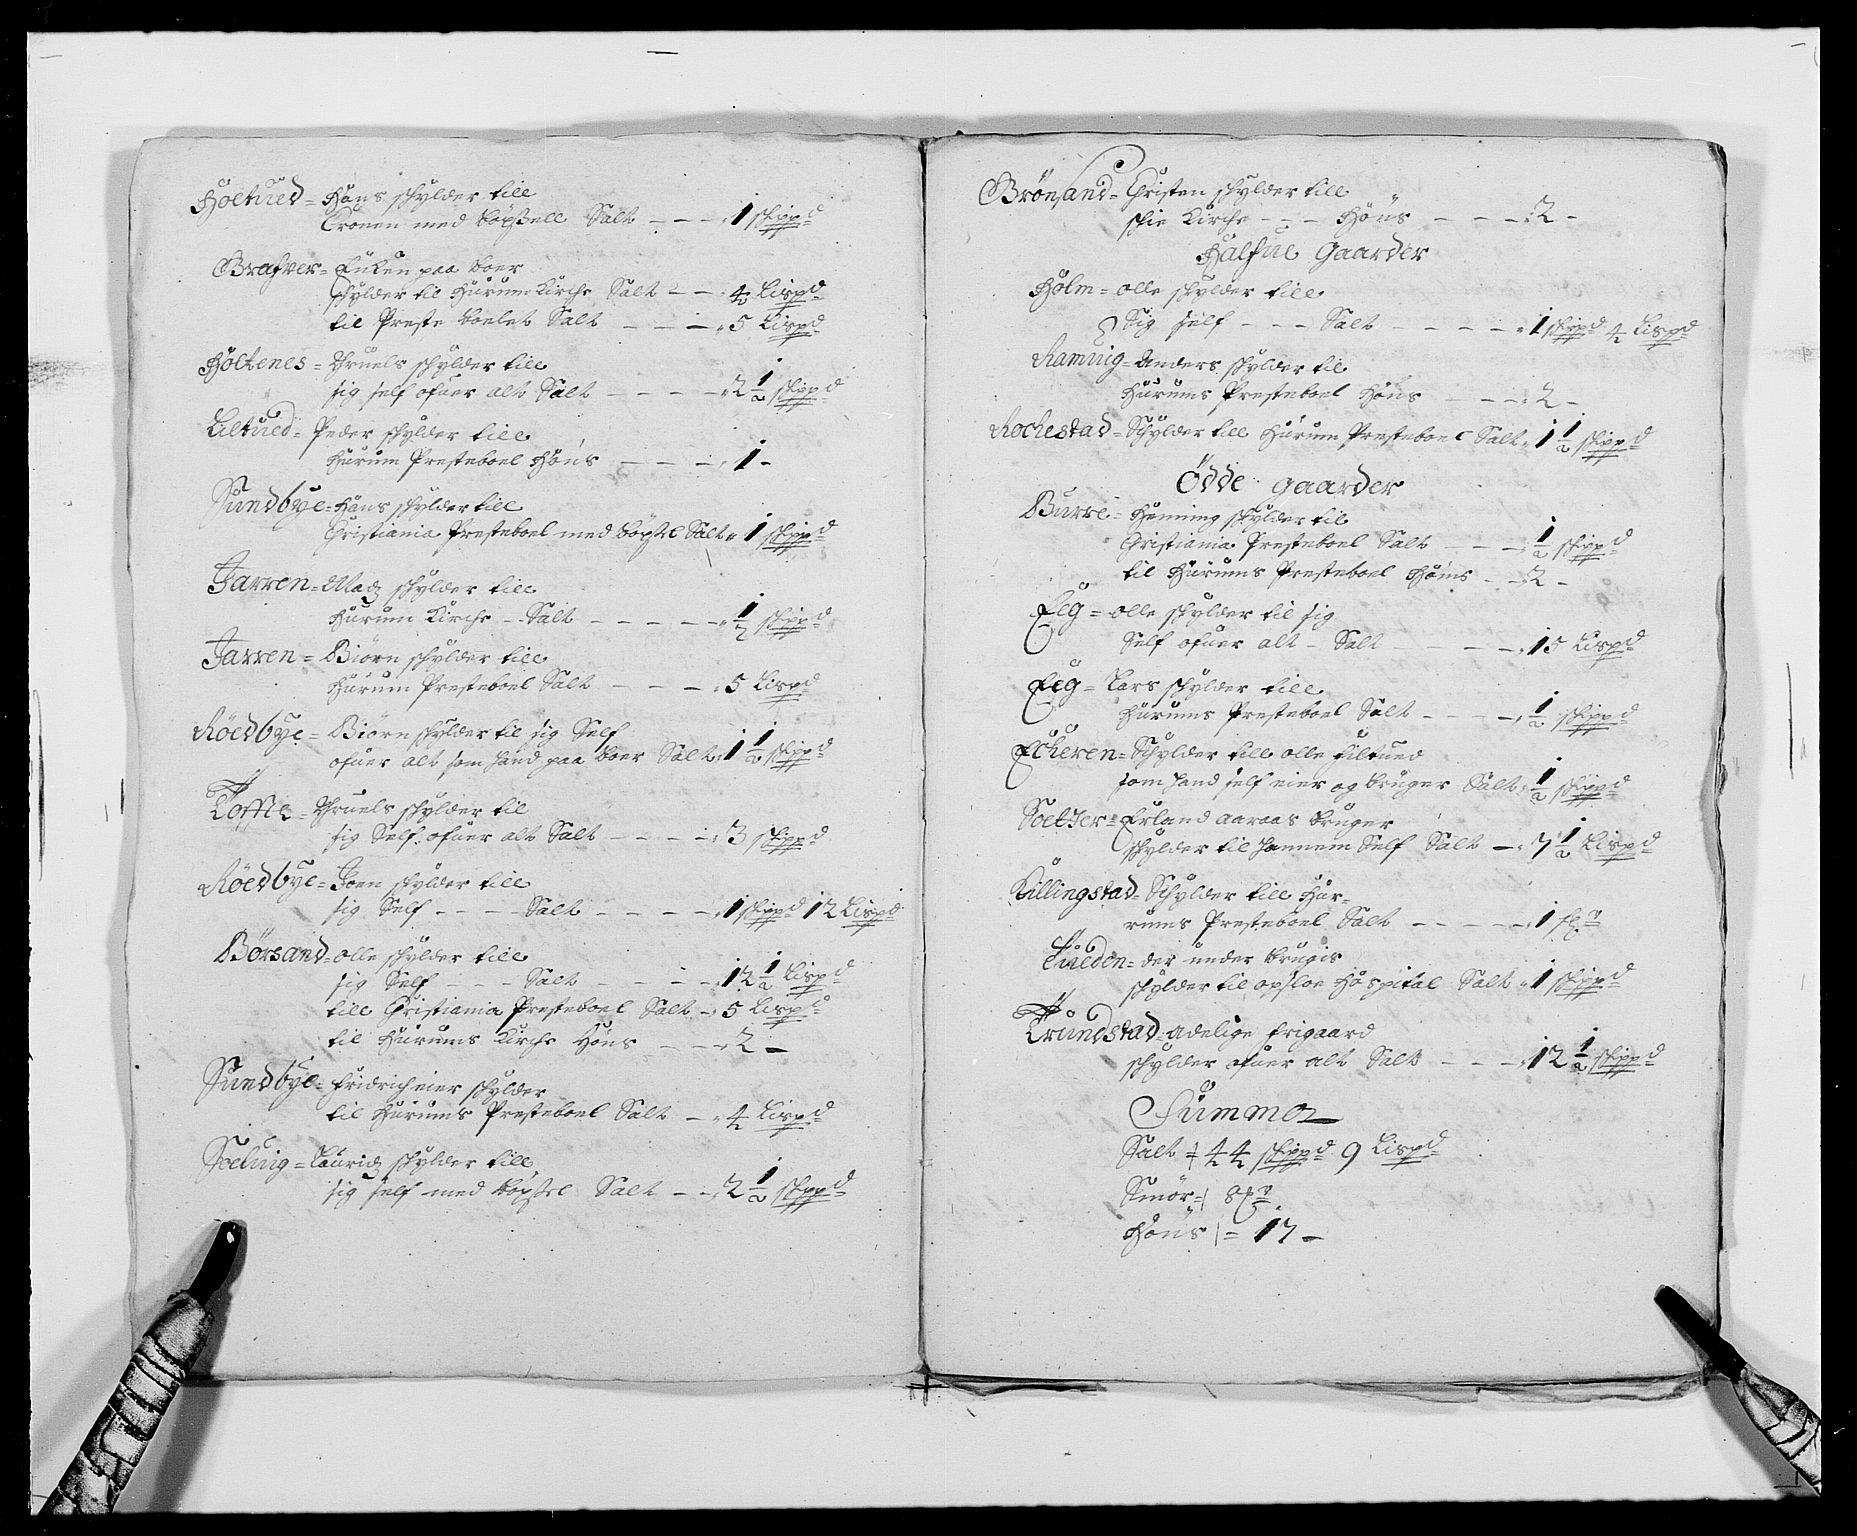 Holtued = Hans schylder till
Cronen med böxsell Salt - - - 1 skippd
Brafver = Encken paa boer
schylder til Hurum Kirche Salt - - 4 Lispd
til Preste boelet Salt - - - 5 Lispd
Holtenes = Truels schylder till
sig self ofuer alt Salt - - - - 2 1/2 skippd
Liltued = Peder schylder till
Hurum Presteboel Höns - - - - 1 -
Sundbye = Hans schylder till
Christiania Presteboel med böxsel Salt 1 skippd
Jarren = Madz schylder till
Hurum Kirche - Salt - - - - - 1/2 skippd
Jarren = Biörn schylder till
Hurum Presteboel Salt - - - 5 Lispd
Röedbye = Biörn schylder til sig Self
ofuer alt som hand paa boer Salt 1 1/2 skippd
Tofte = Truels schylder til
sig Self ofuer alt Salt - - - - 3 skippd
Röedbye = Joen schylder till
sig Self - - - - Salt - - - - 1 skippd 12 Lispd
Börsand = olle schylder till
sig Self - - - Salt - - - - 12 1/2 Lispd
till Christiania Presteboel Salt - 5 Lispd
til Hurums Kirche Höns - - - 2 -
Sundbye = Fridrich eier schylder
til Hurums Presteboel Salt - 4 Lispd
Soeluig = Lauridz schylder till
sig self med böxsel Salt - - 2 1/2 skippd
Brönsand = Christen schylder till
skie Kirche - - - Höns - - - 2 -
Halfue Gaarder
Holm = olle schylder till
Sig self - - - Salt - - - - - 1 skippd 4 Lispd
Ramuig = Anders schylder til
Hurums Presteboel Höns - - - 2 -
Rochestad = Schylder till Hurum Presteboel Salt 1 1/2 skippd
Ödde gaarder
Burre = Henning schylder til
Christiania Presteboel Salt - - - 1/2 skippd
til Hurums Presteboel Höns - - 2 -
Eeg = olle schylder til sig
Self ofuer alt - Salt - - - - 15 Lispd
Eeg = Lars schylder till
Hurums Presteboel Salt - - - - 1/2 skippd
Echeren = Schylder till olle Liltued
som hand self eier og bruger Salt 1/2 skippd
Soetter = Erland aaraas bruger
schylder til hannem Self Salt - 7 1/2 Lispd
Killingstad = Schylder till Hur-
rums Presteboel Salt - - - - - 1
Tueden = der under brugis
schylder til opsloe Hospital Salt 1 skippd
Trundstad = adelige frigaard
schylder ofuer alt Salt - - - 12 1/2 skippd
Summa
Salt = 44 skippd 9 Lispd
Smör =
Höns = 17 -